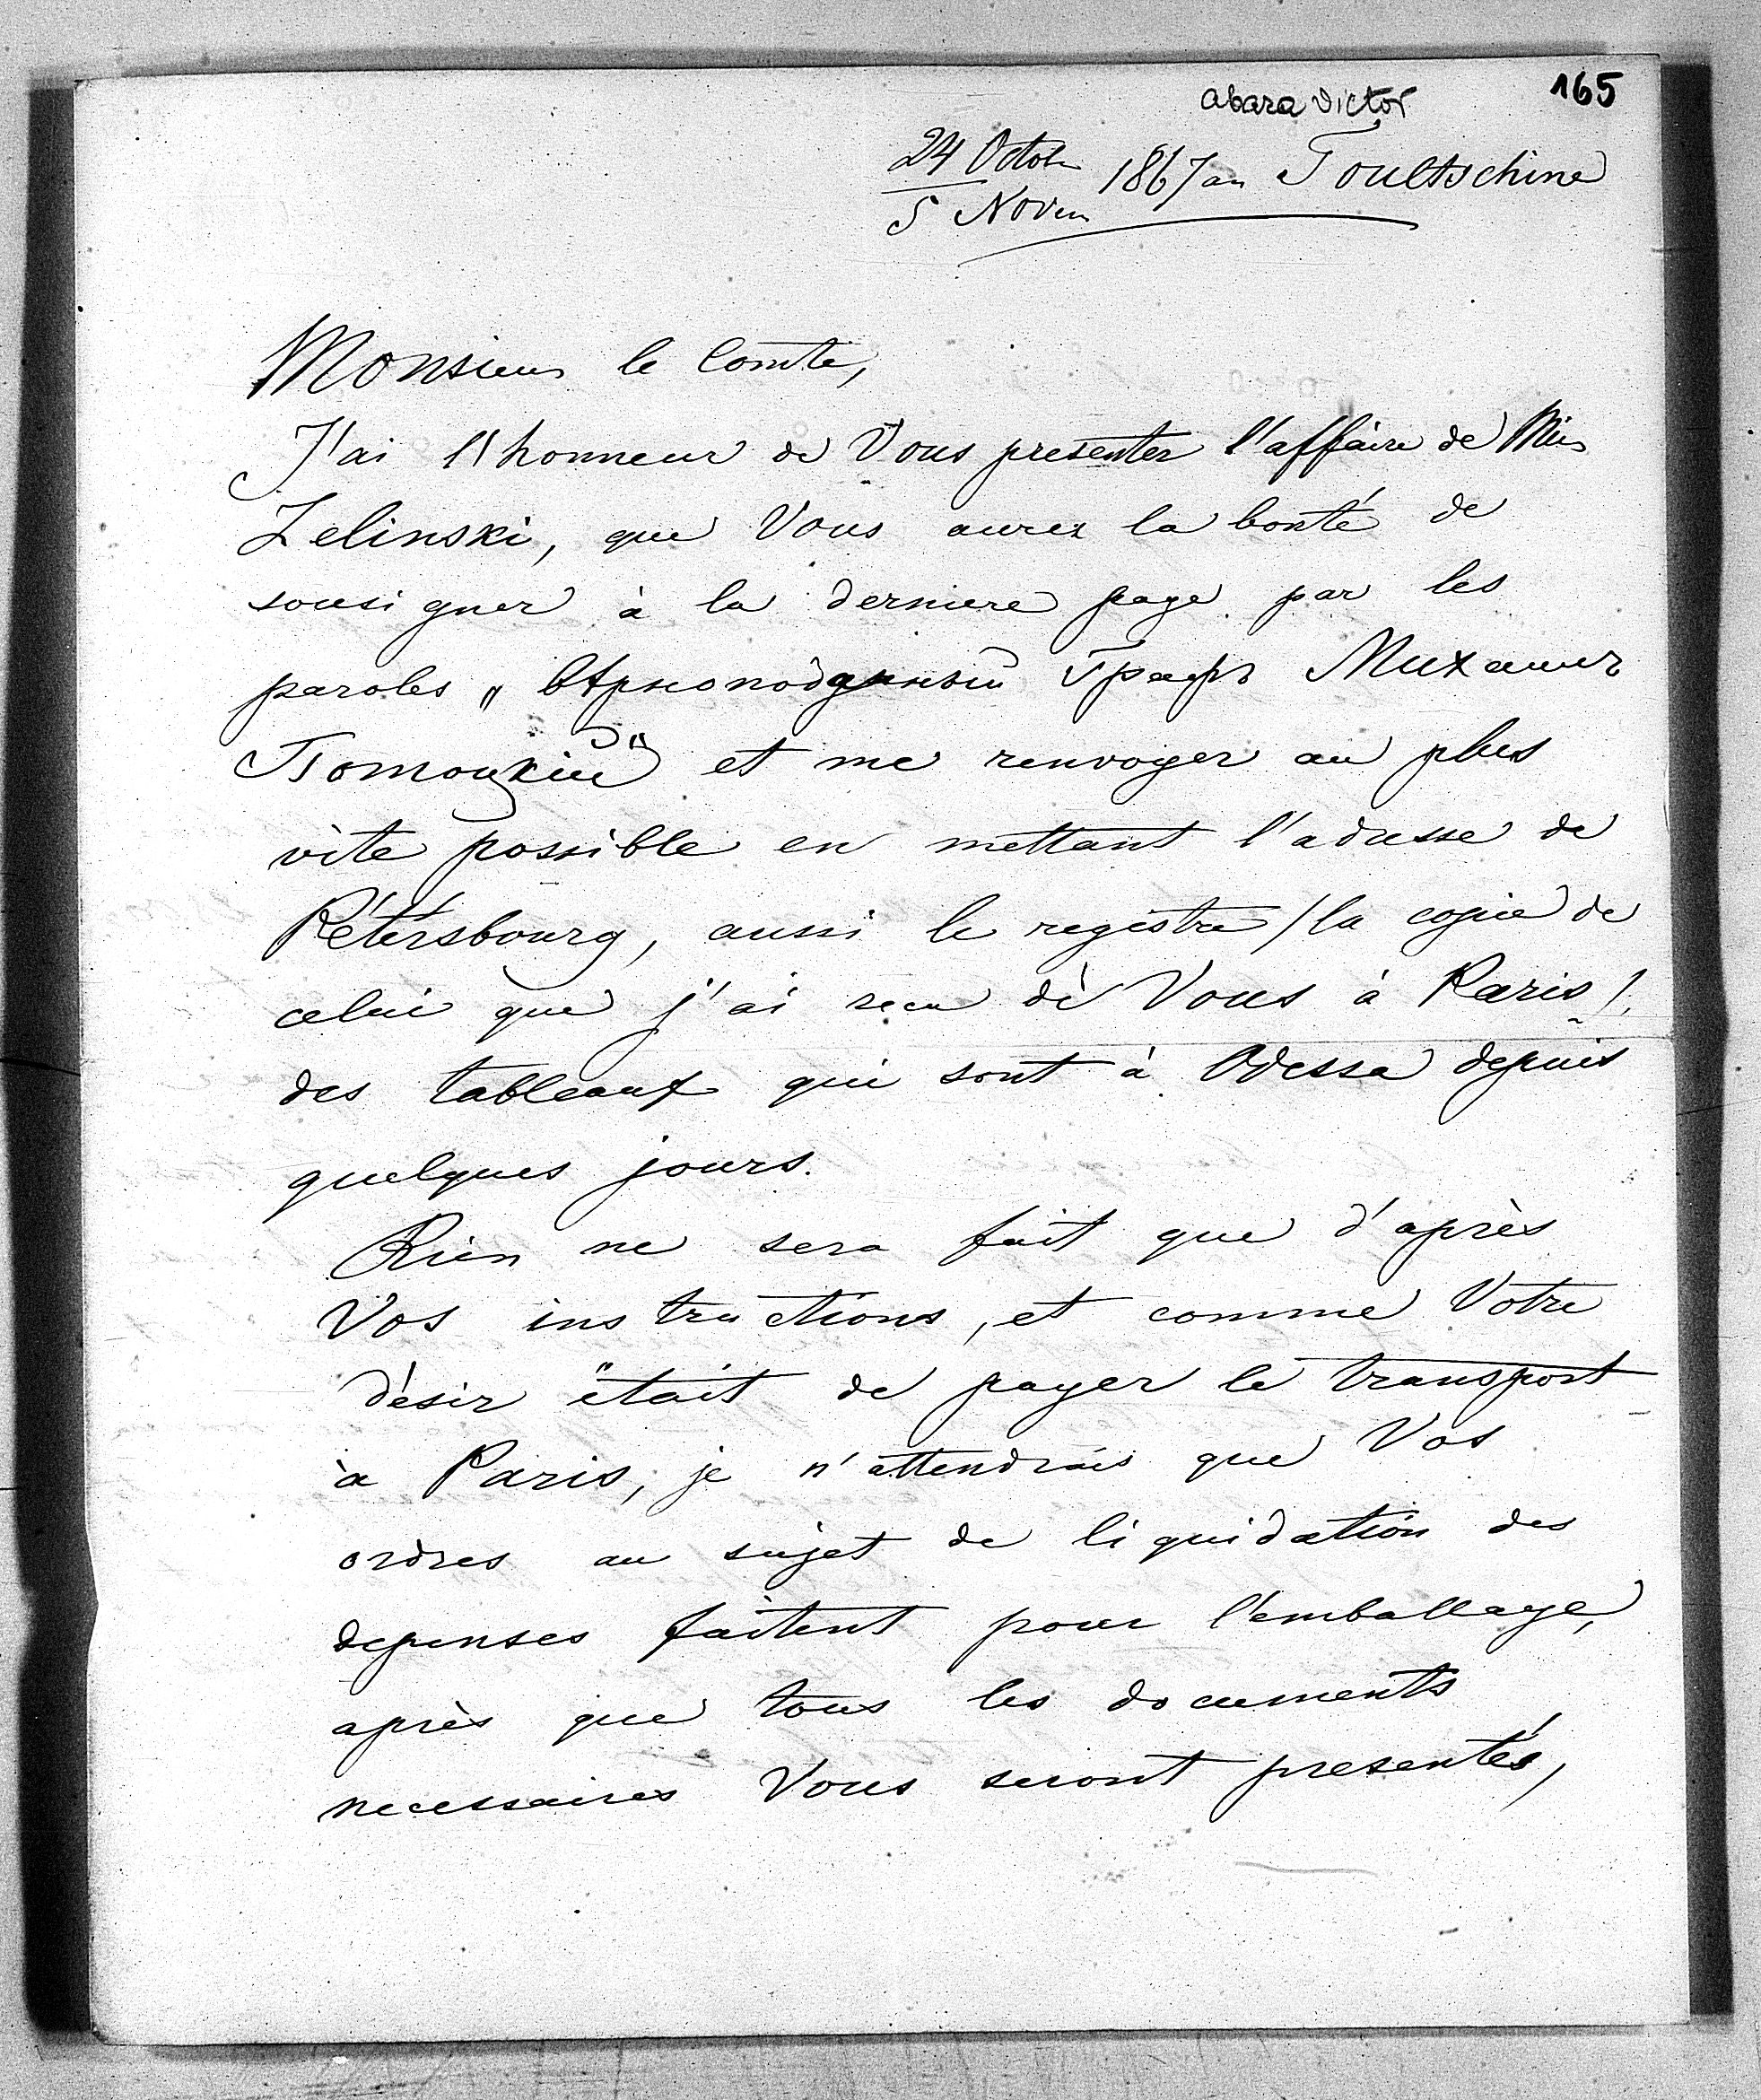 165
abaza Victor
24 Octobr
5 Novem 1867 an Toultschine
Monsieur le Comte,
J'ai l'honneur de Vous presenter l'affaire de
Zelinski, que Vous aurez la bonté de
sousigner à la derniere page par les
paroles „ Вѣрноподданный Графъ Михаилъ
Потоцкій" et me renvoyer au plus
vite possible en mettant l'adresse de
Pétérsbourg, aussi le registre /la copie de
celui que j'ai recu de Vous à Paris/
des tableaux qui sont à Odessa depuis
quelques jours.
Rien ne sera fait que d'après
Vos instructions, et comme Votre
désir était de payer le transport
à Paris, je n'attendrais que Vos
ordres au sujet de liquidation des
depenses faitent pour l'emballage,
après que tous les documents
necessaires Vous seront presentés,